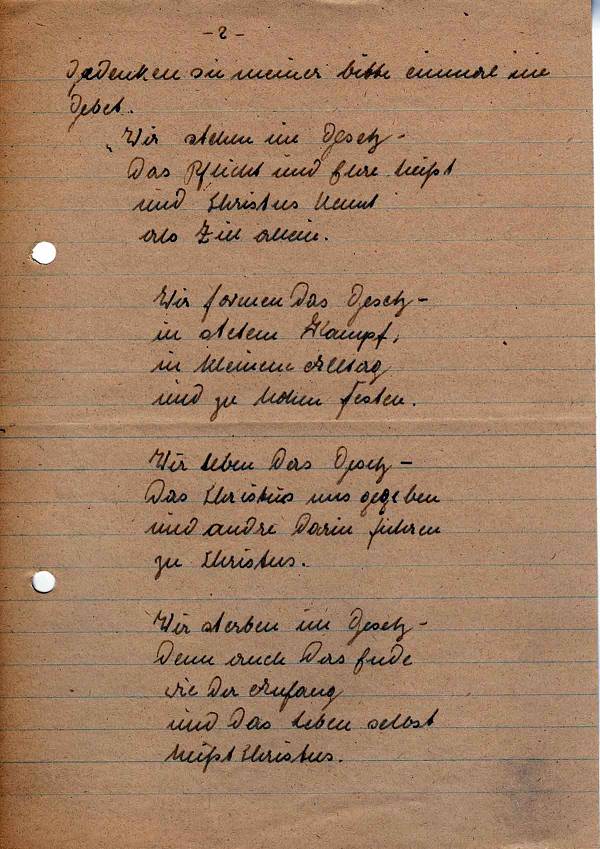 - 2 -
Gedenken sie meiner bitte einmal im
Gebet.
„Wir stehen im Gesetz -
Das Pflicht und Ehre heißt
und Christus kennt
als Ziel allein.
Wir formen das Gesetz -
in stetem Kampf,
im kleinem Alltag
und zu hohen Festen.
Wir leben das Gesetz -
Das Christus uns gegeben
und andre darin führen
zu Christus.
Wir sterben im Gesetz -
Denn auch das Ende
wie der Anfang
und das Leben selbst
heißt Christus.